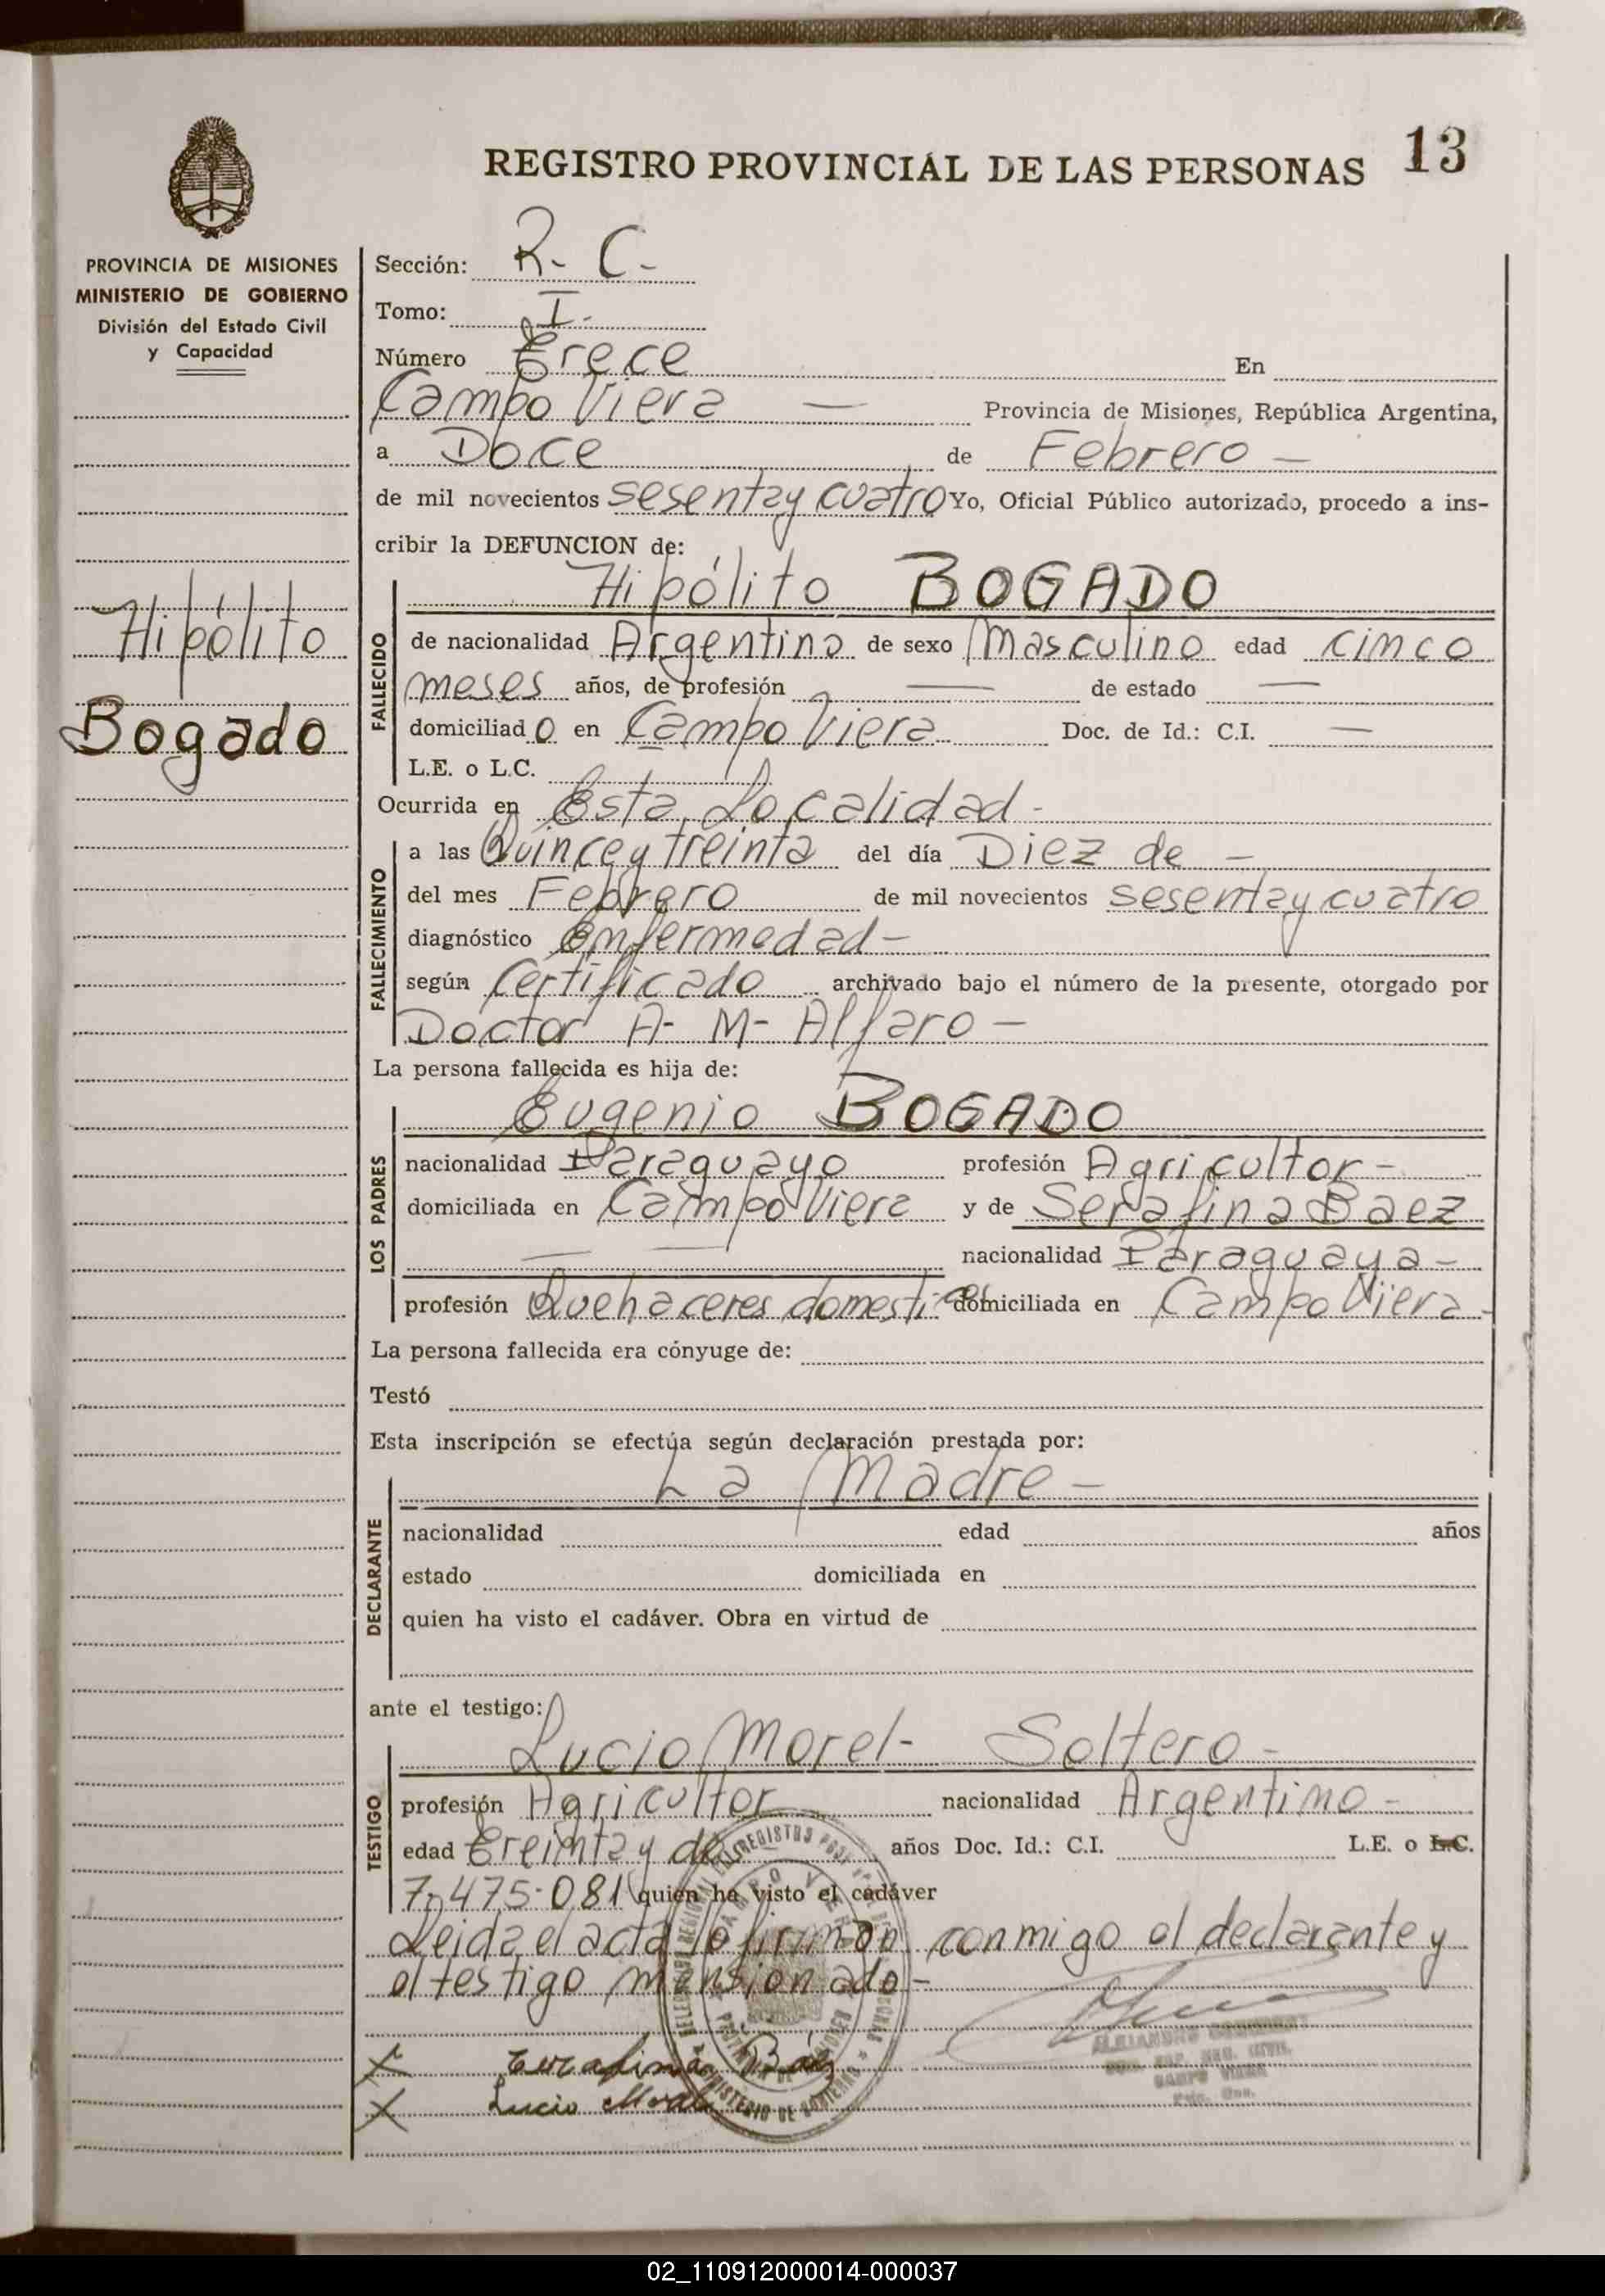 13
REGISTRO PROVINCIAL DE LAS PERSONAS
PROVINCIA DE MISIONES
MINISTERIO DE GOBIERNO
División del Estado Civil
y Capacidad
Hipólito
Bogado
Sección: R- C-
Tomo: I-
Número Trece En
Campo Viera — Provincia de Misiones, República Argentina,
a Doce de Febrero —
de mil novecientos sesentay cuatro Yo, Oficial Público autorizado, procedo a ins-
cribir la DEFUNCION de:
Hipólito BOGADO
FALLECIDO
de nacionalidad Argentina de sexo Masculino edad cinco
meses años, de profesión — de estado —
domiciliado en Campo Viera Doc. de Id.: C.I. —
L.E. o L.C.
Ocurrida en Esta Localidad -
FALLECIMIENTO
a las Quince y treinta del día Diez de —
del mes Febrero de mil novecientos sesentay cuatro
diagnóstico Enfermedad —
según Certificado archivado bajo el número de la presente, otorgado por
Doctor A- M- Alfaro —
La persona fallecida es hija de:
Eugenio BOGADO
LOS PADRES
nacionalidad Paraguayo profesión Agricultor -
domiciliada en Campo Viera y de Serafina Baez
— — nacionalidad Paraguaya -
profesión Quehaceres domesticos domiciliada en Campo Viera -
La persona fallecida era cónyuge de:
Testó
Esta inscripción se efectúa según declaración prestada por:
La Madre —
DECLARANTE
nacionalidad edad años
estado domiciliada en
quien ha visto el cadáver. Obra en virtud de
ante el testigo:
Lucio Morel- Soltero -
TESTIGO
profesión Agricultor nacionalidad Argentino -
edad Treintay dos años Doc. Id.: C.I. L.E. o L.C.
7-475-081 quien ha visto el cadáver
Leida el acta lo firman conmigo el declarante y
el testigo mensionado -
x Serafina Báez
x Lucio Morel
CAMPO VIERA
MINISTERIO DE GOBIERNO
02_110912000014-000037